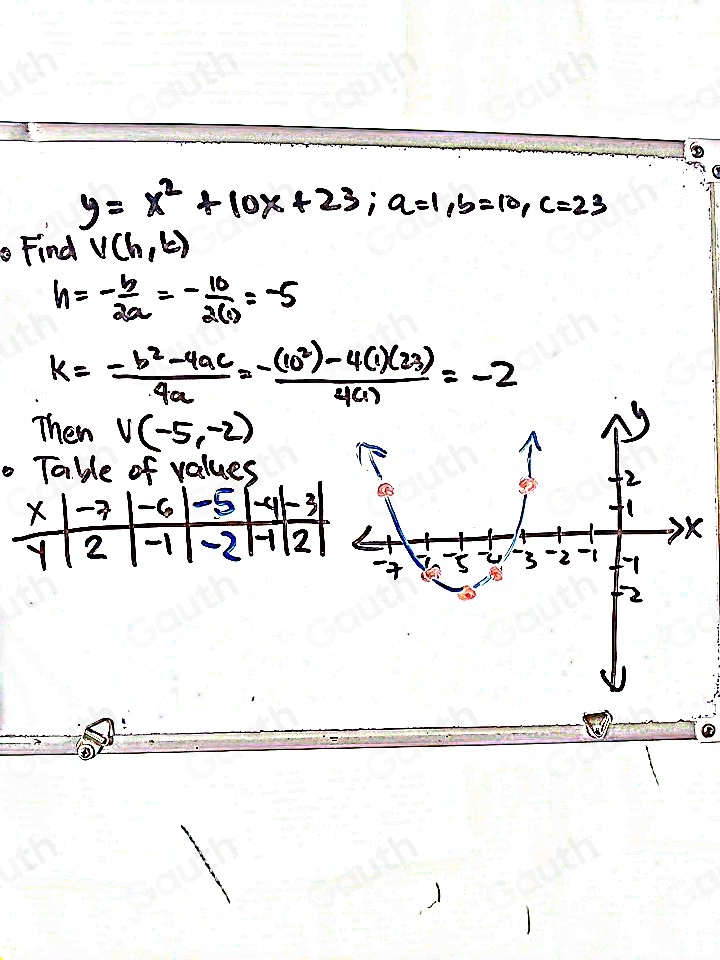 y = x² + 10x + 23; a=1, b=10, c=23
• Find V(h, k)
h = -b/2a = -10/2(1) = -5
k = -b²-4ac/4a = -(10²)-4(1)(23)/4(1) = -2
Then V(-5,-2)
• Table of values
x | -7 | -6 | -5 | -4 | -3
y | 2 | -1 | -2 | -1 | 2
y
2
1
x
-7 -6 -5 -4 -3 -2 -1
-1
-2
Gauth